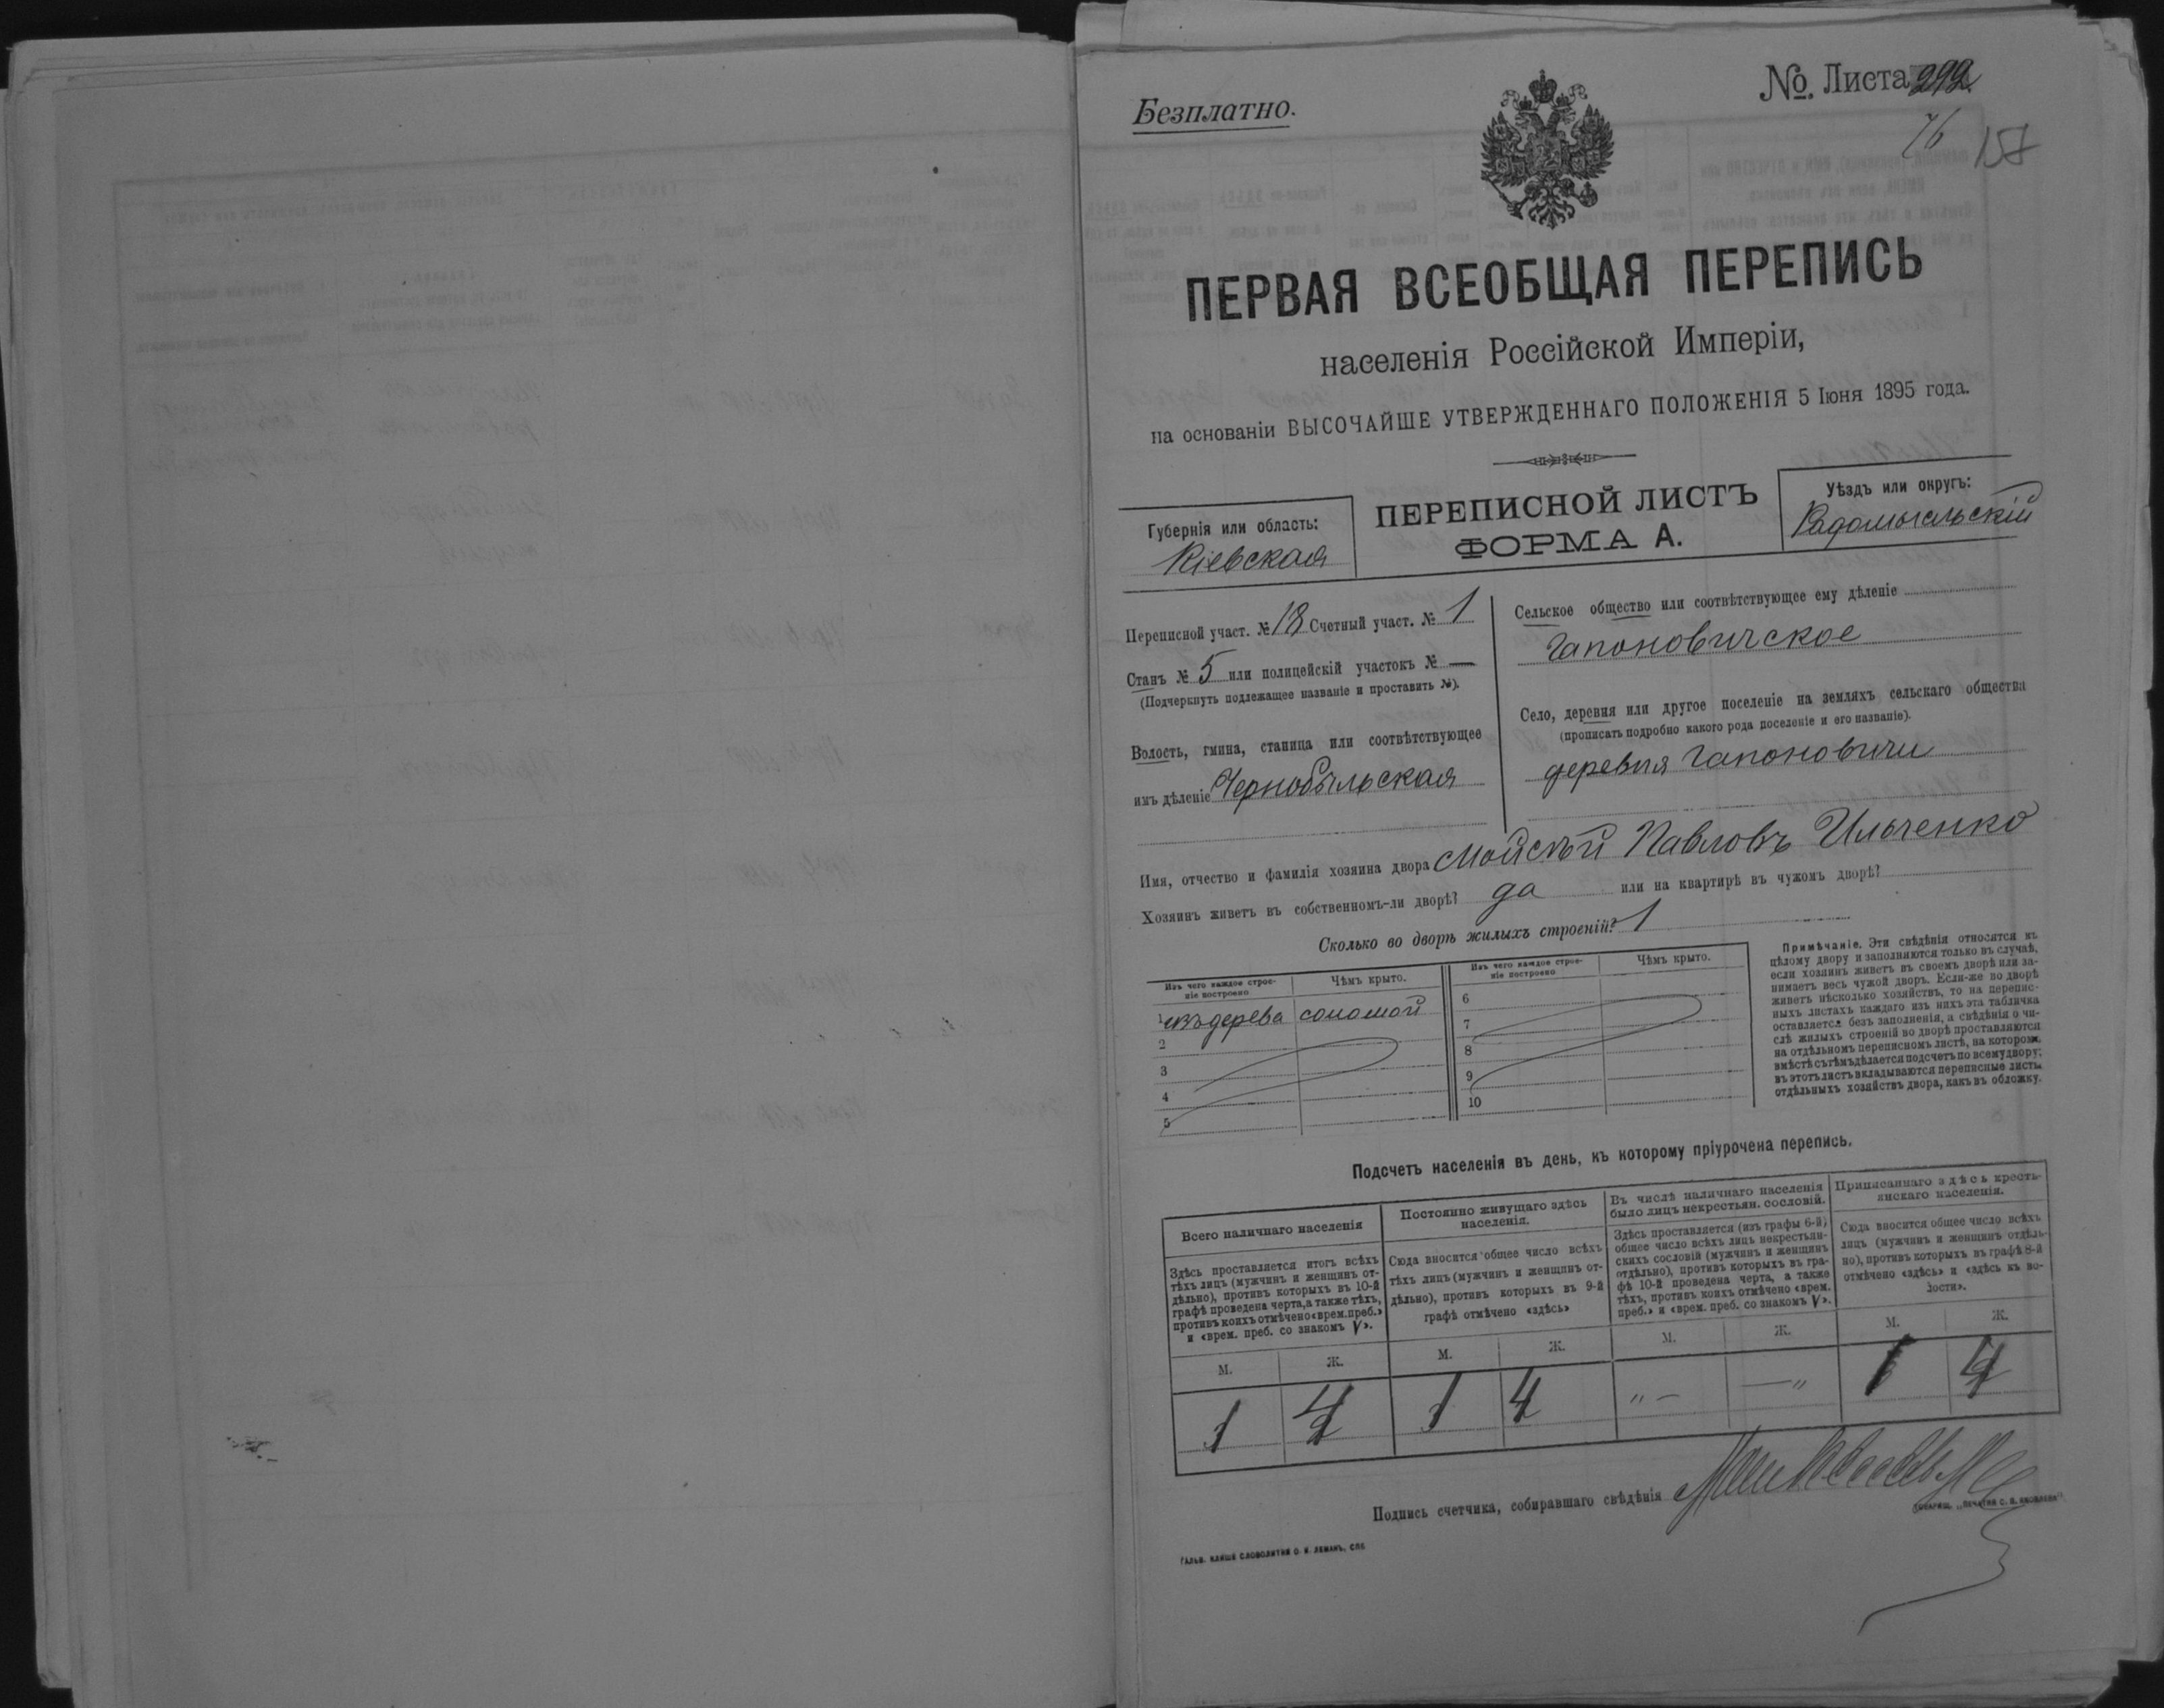 Безплатно.
№ Листа 292
76 157
ПЕРВАЯ ВСЕОБЩАЯ ПЕРЕПИСЬ
населенія Россійской Имперіи,
на основаніи ВЫСОЧАЙШЕ УТВЕРЖДЕННАГО ПОЛОЖЕНІЯ 5 Іюня 1895 года.
Губернія или область:
Кіевская
ПЕРЕПИСНОЙ ЛИСТЪ
ФОРМА А.
Уѣздъ или округъ:
Радомысльскій
Переписной участ. № 18 Счетный участ. № 1
Станъ № 5 или полицейскій участокъ № —
(Подчеркнуть подлежащее названіе и проставить №).
Волость, гмина, станица или соотвѣтствующее
имъ дѣленіе Чернобыльская
Сельское общество или соотвѣтствующее ему дѣленіе
Гапоновичское
Село, деревня или другое поселеніе на земляхъ сельскаго общества
(прописать подробно какого рода поселеніе и его названіе).
деревня Гапоновичи
Имя, отчество и фамилія хозяина двора Мойсѣй Павловъ Ильченко
Хозяинъ живетъ въ собственномъ-ли дворѣ? да или на квартирѣ въ чужомъ дворѣ?
Сколько во дворѣ жилыхъ строеній? 1
Изъ чего каждое строе-
ніе построено
Чѣмъ крыто.
1 изъ дерева соломой
2
3
4
5
Изъ чего каждое строе-
ніе построено
Чѣмъ крыто.
6
7
8
9
10
Примѣчаніе. Эти свѣдѣнія относятся къ
цѣлому двору и заполняются только въ случаѣ,
если хозяинъ живетъ въ своемъ дворѣ или за-
нимаетъ весь чужой дворъ. Если-же во дворѣ
живетъ нѣсколько хозяйствъ, то на перепис-
ныхъ листахъ каждаго изъ нихъ эта табличка
оставляется безъ заполненія, а свѣдѣнія о чи-
слѣ жилыхъ строеній во дворѣ проставляются
на отдѣльномъ переписномъ листѣ, на которомъ
вмѣстѣ съ тѣмъ дѣлается подсчетъ по всему двору;
въ этотъ листъ вкладываются переписные листы
отдѣльныхъ хозяйствъ двора, какъ въ обложку.
Подсчетъ населенія въ день, къ которому пріурочена перепись.
Всего наличнаго населенія
Здѣсь проставляется итогъ всѣхъ
тѣхъ лицъ (мужчинъ и женщинъ от-
дѣльно), противъ которыхъ въ 10-й
графѣ проведена черта, а также тѣхъ,
противъ коихъ отмѣчено «врем. преб.»
и «врем. преб. со знакомъ V».
М. Ж.
1 4
Постоянно живущаго здѣсь
населенія.
Сюда вносится общее число всѣхъ
тѣхъ лицъ (мужчинъ и женщинъ от-
дѣльно), противъ которыхъ въ 9-й
графѣ отмѣчено «здѣсь»
М. Ж.
1 4
Въ числѣ наличнаго населенія
было лицъ некрестьян. сословій.
Здѣсь проставляется (изъ графы 6-й)
общее число всѣхъ лицъ некрестьян-
скихъ сословій (мужчинъ и женщинъ
отдѣльно), противъ которыхъ въ гра-
фѣ 10-й проведена черта, а также
тѣхъ, противъ коихъ отмѣчено «врем.
преб.» и «врем. преб. со знакомъ V».
М. Ж.
„ — — „
Приписаннаго здѣсь кресть-
янскаго населенія.
Сюда вносится общее число всѣхъ
лицъ (мужчинъ и женщинъ отдѣль-
но), противъ которыхъ въ графѣ 8-й
отмѣчено «здѣсь» и «здѣсь къ во-
лости».
М. Ж.
1 4
Подпись счетчика, собиравшаго свѣдѣнія
ГАЛЬВ. КЛИШЕ СЛОВОЛИТНИ О. И. ЛЕМАНЪ, СПБ.
ТОВАРИЩ. „ПЕЧАТНЯ С. П. ЯКОВЛЕВА“.